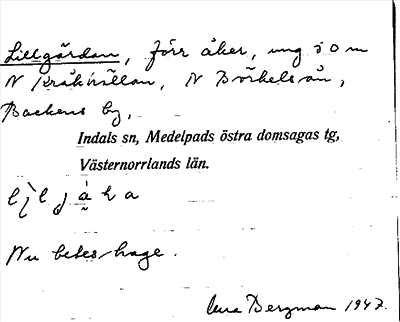 Lillgärdan, förr åker, ung som
N Kråkvällan, N Börkelsån,
Backens by,
Indals sn, Medelpads östra domsagas tg,
Västernorrlands län.
Nu beteshage.
Bergman 1947.